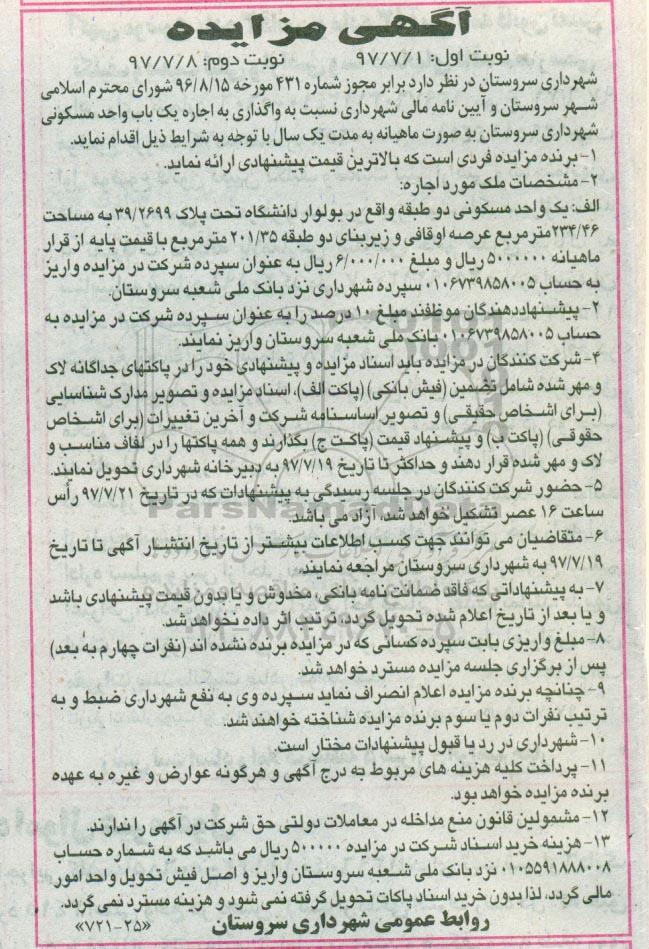 آگهی مزایده
نوبت اول: ۹۷/۷/۱ نوبت دوم: ۹۷/۷/۸
شهرداری سروستان در نظر دارد برابر مجوز شماره ۴۳۱ مورخه ۹۶/۸/۱۵ شورای محترم اسلامی
شهر سروستان و آیین نامه مالی شهرداری نسبت به واگذاری به اجاره یک باب واحد مسکونی
شهرداری سروستان به صورت ماهیانه به مدت یک سال با توجه به شرایط ذیل اقدام نماید.
۱- برنده مزایده فردی است که بالاترین قیمت پیشنهادی ارائه نماید.
۲- مشخصات ملک مورد اجاره:
الف: یک واحد مسکونی دو طبقه واقع در بولوار دانشگاه تحت پلاک ۳۹/۲۶۹۹ به مساحت
۲۳۴/۴۶ متر مربع عرصه اوقافی و زیربنای دو طبقه ۲۰۱/۳۵ متر مربع با قیمت پایه از قرار
ماهیانه ۵۰۰۰۰۰۰ ریال و مبلغ ۶/۰۰۰/۰۰۰ ریال به عنوان سپرده شرکت در مزایده واریز
به حساب ۰۱۰۶۷۳۹۸۵۸۰۰۵ سپرده شهرداری نزد بانک ملی شعبه سروستان.
۲- پیشنهاددهندگان موظفند مبلغ ۱۰ درصد را به عنوان سپرده شرکت در مزایده به
حساب ۰۱۰۶۷۳۹۸۵۸۰۰۵ بانک ملی شعبه سروستان واریز نمایند.
۴- شرکت کنندگان در مزایده باید اسناد مزایده و پیشنهادی خود را در پاکتهای جداگانه لاک
و مهر شده شامل تضمین (فیش بانکی) (پاکت الف)، اسناد مزایده و تصویر مدارک شناسایی
(برای اشخاص حقیقی) و تصویر اساسنامه شرکت و آخرین تغییرات (برای اشخاص
حقوقی) (پاکت ب) و پیشنهاد قیمت (پاکت ج) بگذارند و همه پاکتها را در لفاف مناسب و
لاک و مهر شده قرار دهند و حداکثر تا تاریخ ۹۷/۷/۱۹ به دبیرخانه شهرداری تحویل نمایند.
۵- حضور شرکت کنندگان در جلسه رسیدگی به پیشنهادات که در تاریخ ۹۷/۷/۲۱ رأس
ساعت ۱۶ عصر تشکیل خواهد شد، آزاد می باشد.
۶- متقاضیان می توانند جهت کسب اطلاعات بیشتر از تاریخ انتشار آگهی تا تاریخ
۹۷/۷/۱۹ به شهرداری سروستان مراجعه نمایند.
۷- به پیشنهاداتی که فاقد ضمانت نامه بانکی، مخدوش و یا بدون قیمت پیشنهادی باشد
و یا بعد از تاریخ اعلام شده تحویل گردد، ترتیب اثر داده نخواهد شد.
۸- مبلغ واریزی بابت سپرده کسانی که در مزایده برنده نشده اند (نفرات چهارم به بعد)
پس از برگزاری جلسه مزایده مسترد خواهد شد.
۹- چنانچه برنده مزایده اعلام انصراف نماید سپرده وی به نفع شهرداری ضبط و به
ترتیب نفرات دوم یا سوم برنده مزایده شناخته خواهند شد.
۱۰- شهرداری در رد یا قبول پیشنهادات مختار است.
۱۱- پرداخت کلیه هزینه های مربوط به درج آگهی و هرگونه عوارض و غیره به عهده
برنده مزایده خواهد بود.
۱۲- مشمولین قانون منع مداخله در معاملات دولتی حق شرکت در آگهی را ندارند.
۱۳- هزینه خرید اسناد شرکت در مزایده ۵۰۰۰۰۰ ریال می باشید که به شماره حساب
۰۱۰۵۵۹۱۸۸۸۰۰۸ نزد بانک ملی شعبه سروستان واریز و اصل فیش تحویل واحد امور
مالی گردد، لذا بدون خرید اسناد پاکات تحویل گرفته نمی شود و هزینه مسترد نمی گردد.
روابط عمومی شهرداری سروستان «۲۵-۷۲۱»
ParsNamadData